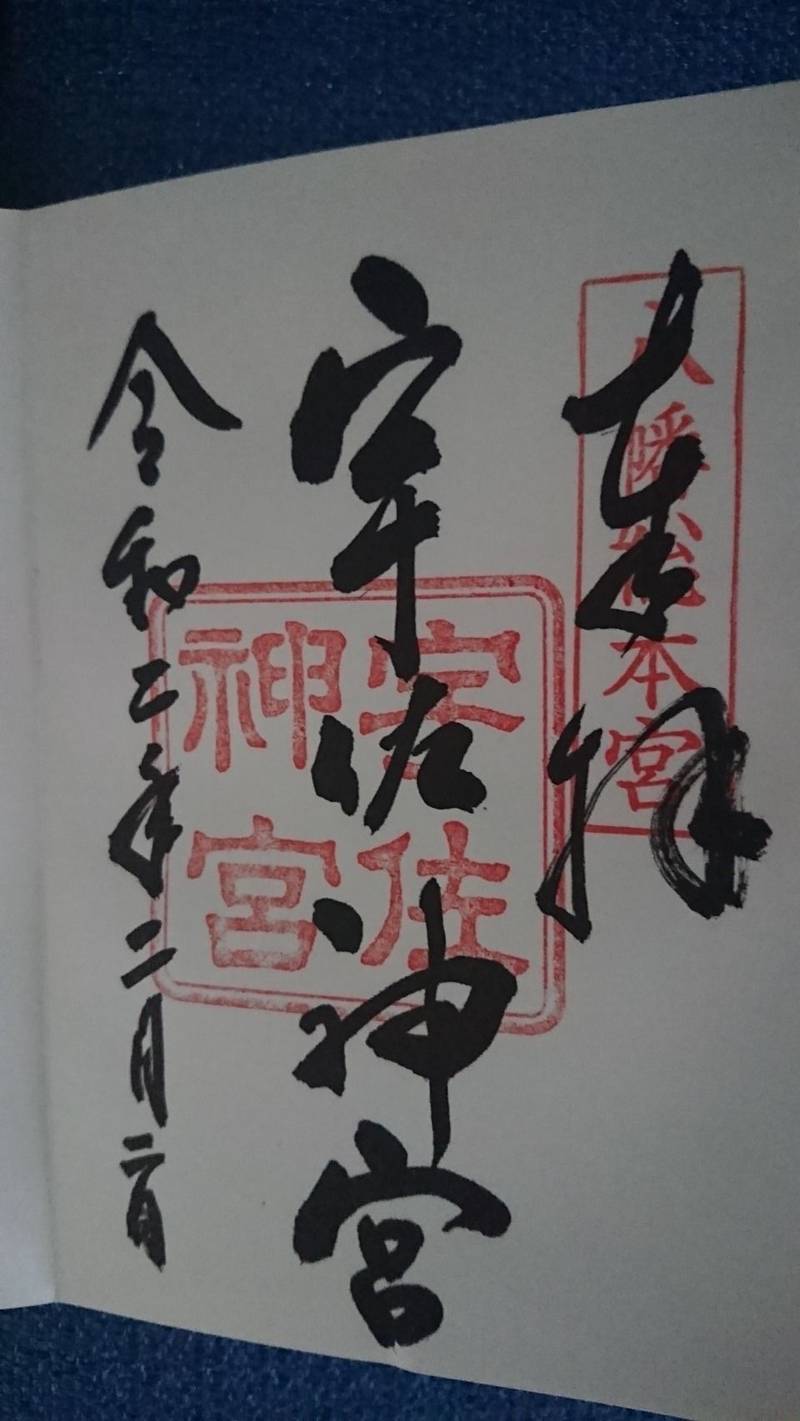 奉拝
八幡総本宮
宇佐神宮
宇佐
神宮
令和二年二月二日